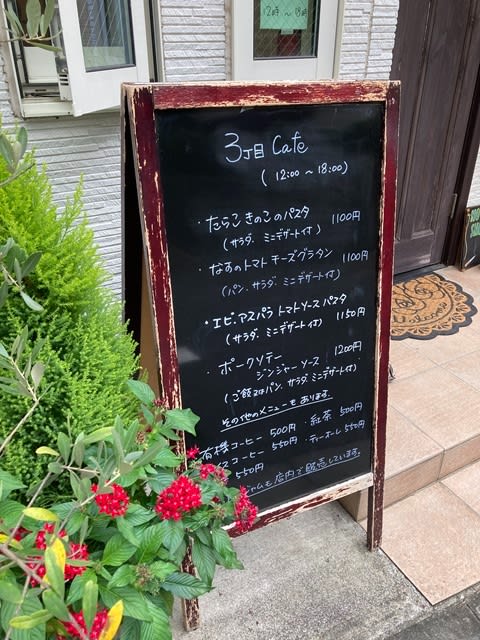 12時〜18時
3丁目 Cafe
(12:00〜18:00)
・たらこきのこのパスタ 1100円
(サラダ、ミニデザート付)
・なすのトマトチーズグラタン 1100円
(パン、サラダ、ミニデザート付)
・エビ、アスパラ トマトソースパスタ 1150円
(サラダ、ミニデザート付)
・ポークソテー
ジンジャーソース 1200円
(ご飯又はパン、サラダ、ミニデザート付)
その他のメニューもあります。
有機コーヒー 500円 ・紅茶 500円
スコーヒー 550円 ・ティーオーレ 550円
550円
ャムも店内で販売しています。